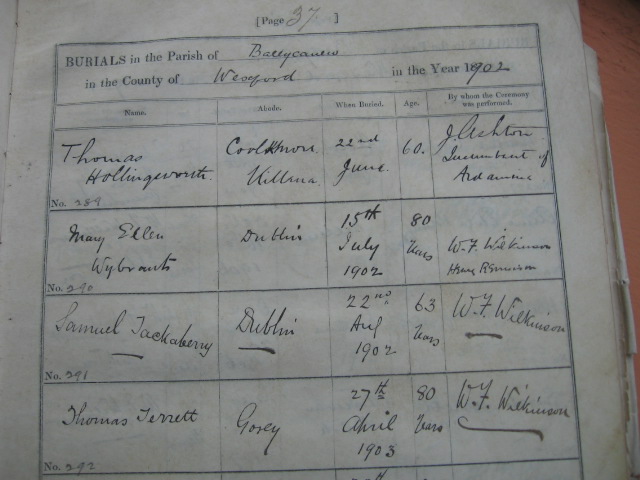 [Page 37 ]
BURIALS in the Parish of Ballycanew
in the County of Wexford in the Year 1902
Name. Abode. When Buried. Age. By whom the Ceremony was performed.
Thomas Hollingsworth. Killena 22nd June. 60. J. Ashton Incumbent of Ardamine
No. 289
Mary Ellen Wybrants Dublin 15th July 1902 80 Years W. F. Wilkinson
No. 290
Samuel Tackaberry Dublin 22nd Aug 1902 63 Years W. F. Wilkinson
No. 291
Thomas Terrett Gorey 27th April 1903 80 Years W. F. Wilkinson
No. 292